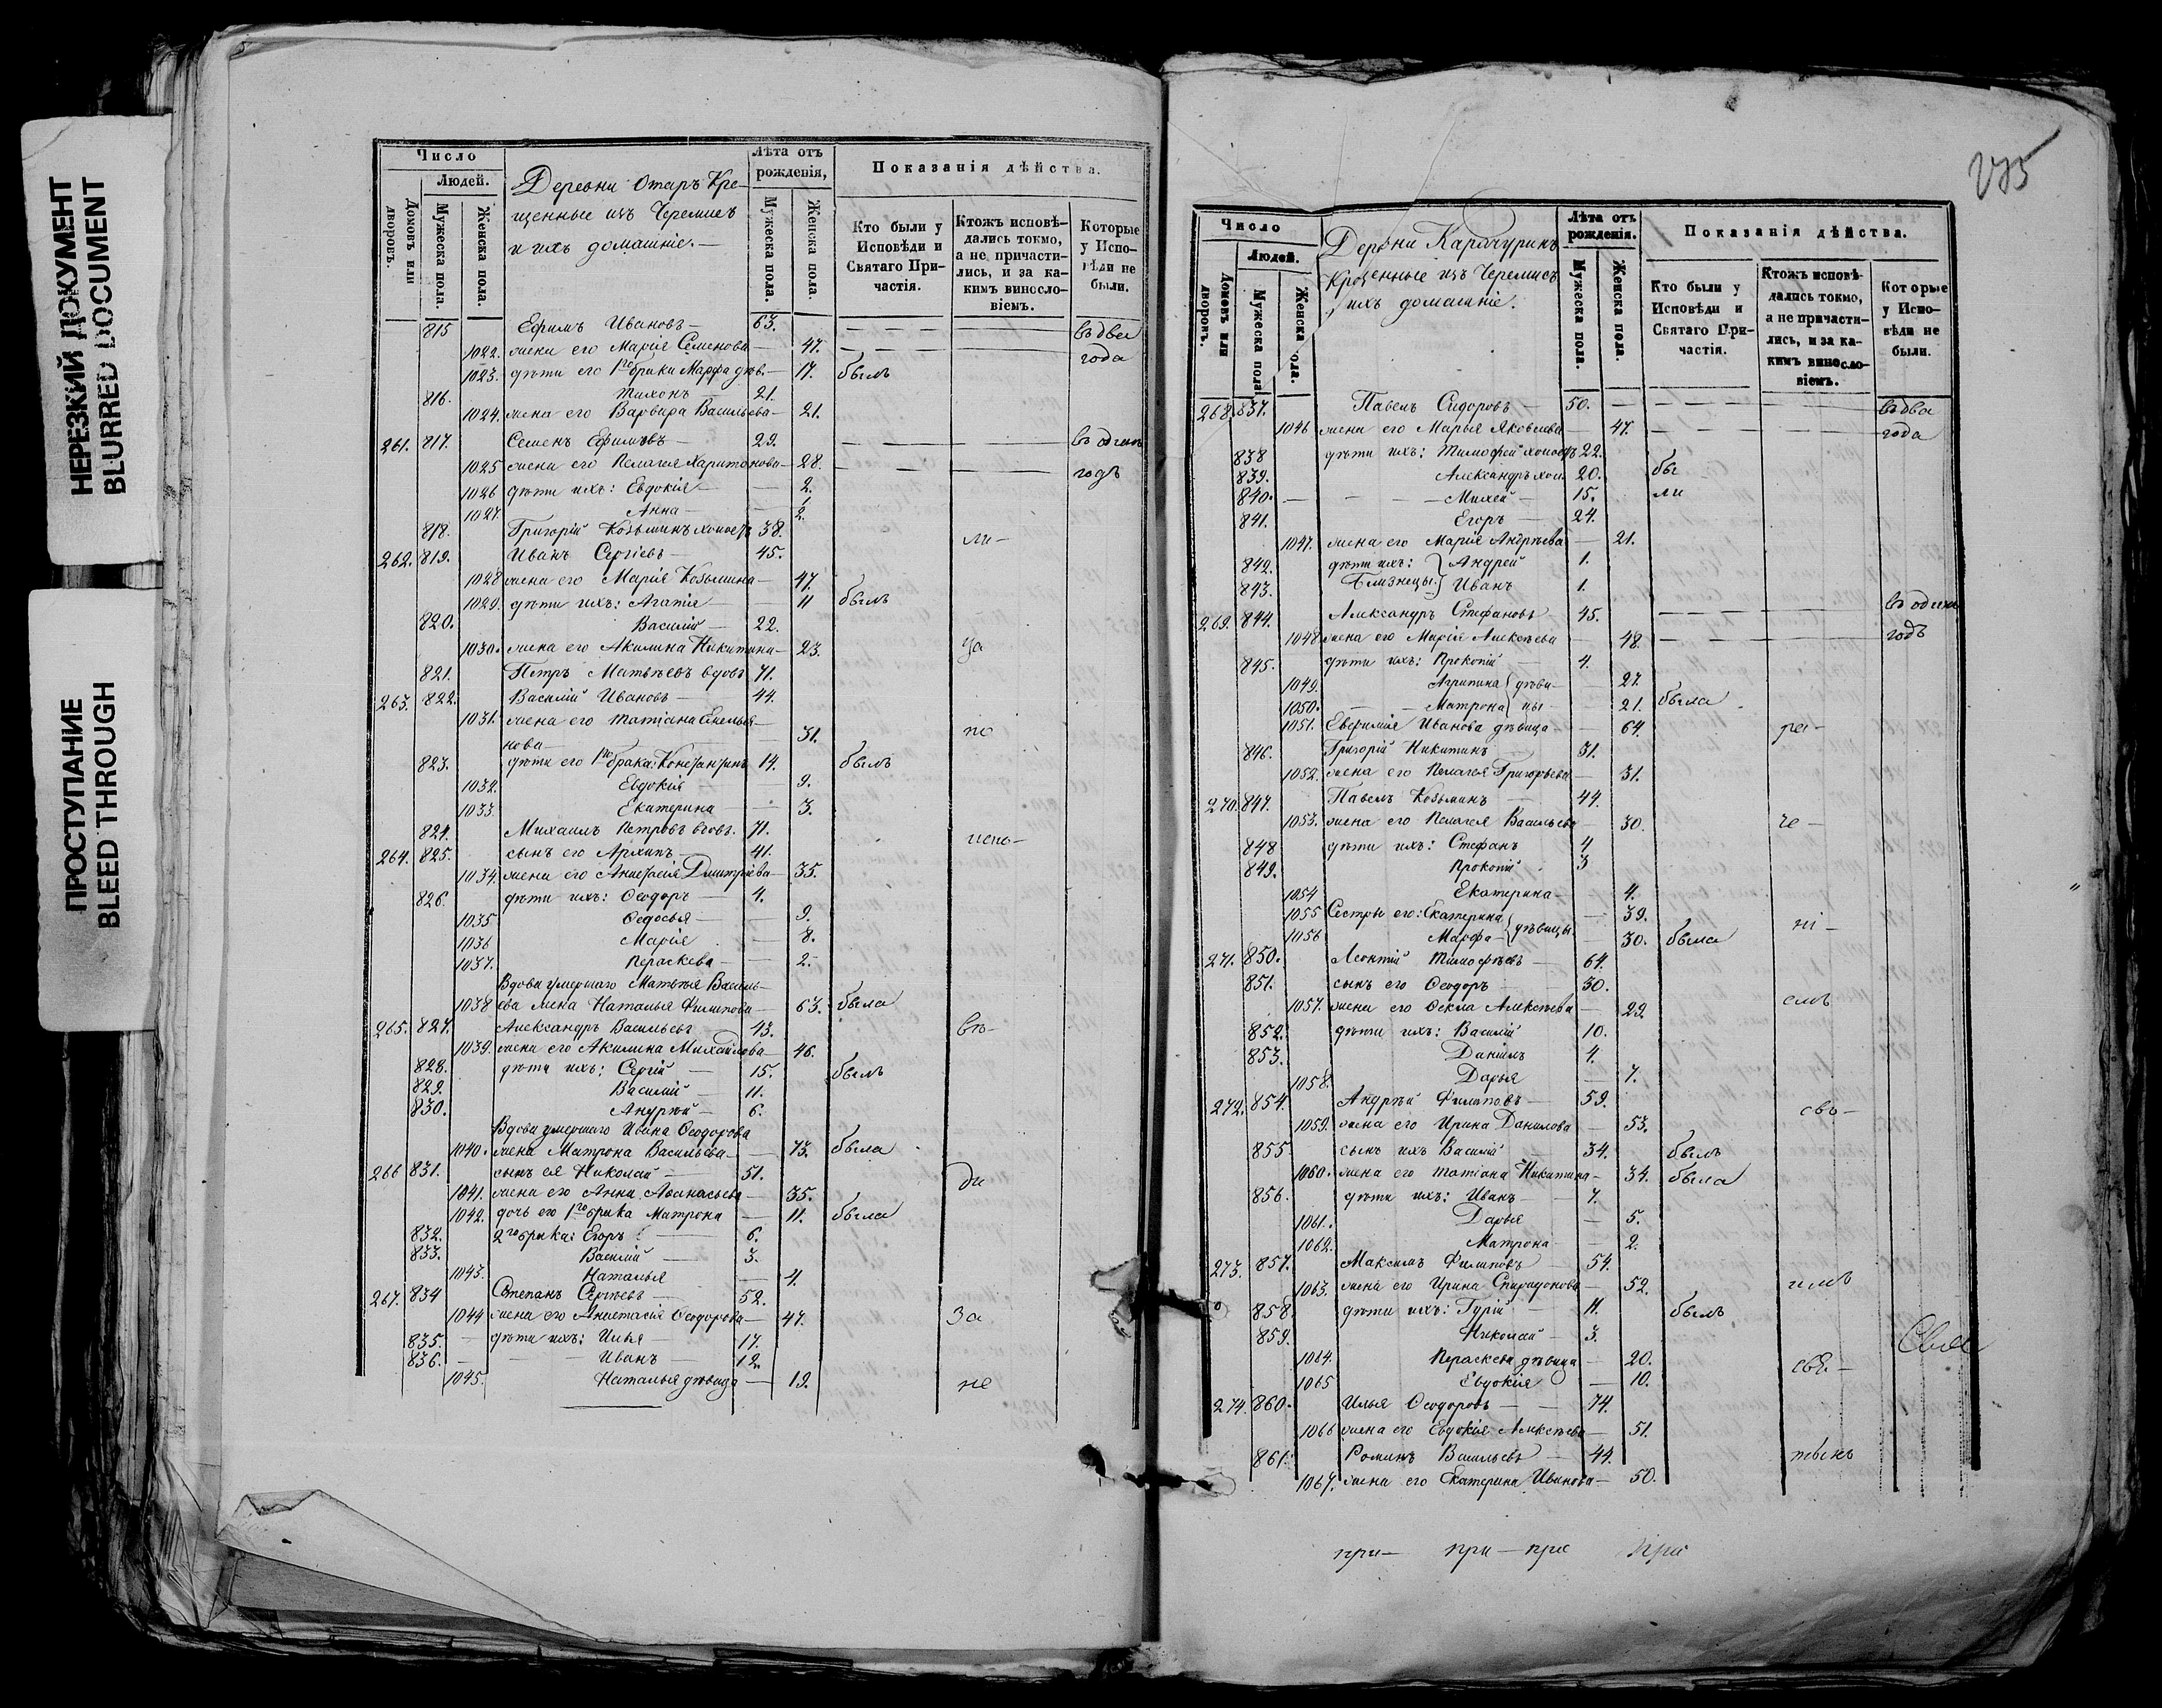 НЕРЕЗКИЙ ДОКУМЕНТ
BLURRED DOCUMENT
ПРОСТУПАНИЕ
BLEED THROUGH
Число
Людей.
Домовъ или дворовъ.
Мужеска пола.
Женска пола.
Деревни Отаръ Кре-
щенные изъ Черемисъ
и ихъ домашніе.
Лѣта отъ рожденія,
Мужеска пола.
Женска пола.
Показанія дѣйства.
Кто были у Исповѣди и Святаго Причастія.
Ктожъ исповѣдались токмо, а не причастились, и за какимъ винословіемъ.
Которые у Исповѣди не были.
815 Ефимъ Ивановъ — 63. въ два
1022. жена его Марія Семенова — 47. года
1023. дѣти его 1го брака Марфа дѣв. — 17. былъ
816. Тихонъ — 21.
1024. жена его Варвара Васильева — 21.
261. 817. Семенъ Ефимовъ — 29. въ одинъ
1025 жена его Пелагея Харитонова — 28. годъ
1026 дѣти ихъ: Евдокія — 2.
1027. Анна —
818. Григорій Козьминъ холостъ 38. ли-
262. 819. Иванъ Сергіевъ — 45.
1028 жена его Марія Козьмина — 47.
1029. дѣти ихъ: Агатія — 11 былъ
820. Василій — 22.
1030. жена его Акилина Никитина — 23. ца
821. Петръ Матвѣевъ вдовъ 71.
263. 822. Василій Ивановъ — 44.
1031. жена его Татіана Емелья-
нова — 31. по
823. дѣти его 1го брака: Константинъ 14. былъ
1032. Евдокія — 9.
1033. Екатерина — 3.
824. Михаилъ Петровъ вдовъ. 71. испо-
264. 825. сынъ его Архипъ — 41.
1034. жена его Анастасія Дмитріева — 35.
826. дѣти ихъ: Ѳеодоръ — 4.
1035 Ѳедосья — 9.
1036 Марія — 8.
1037. Параскева — 2.
Вдова умершаго Матвѣя Василь-
1038 ева жена Наталья Филипова — 63. была
265. 827. Александръ Васильевъ — 43. вѣ-
1039. жена его Акилина Михайлова — 46.
828. дѣти ихъ: Сергій — 15. былъ
829. Василій — 11.
830. Андрѣй — 6.
Вдова умершаго Ивана Ѳеодорова
1040. жена Матрона Васильева — 73. была
266 831. сынъ ея Николай — 51. ди
1041. жена его Анна Аѳанасьева — 35.
1042. дочь его 1го брака Матрона — 11. была
832. 2го брака: Егоръ — 6.
833. Василій — 3.
1043. Наталья — 4.
267. 834 Степанъ Сергѣевъ — 52.
1044 жена его Анастасія Ѳеодорова — 47. За
835. дѣти ихъ: Илья — 17.
836. Иванъ — 12.
1045. Наталья дѣвица — 19. не
275
Число
Людей.
Домовъ или дворовъ.
Мужеска пола.
Женска пола.
Деревни Карачуринъ
Крещенные изъ Черемисъ
и ихъ домашніе.
Лѣта отъ рожденія.
Мужеска пола.
Женска пола.
Показанія дѣйства.
Кто были у Исповѣди и Святаго Причастія.
Ктожъ исповѣдались токмо, а не причастились, и за какимъ винословіемъ.
Которые у Исповѣди не были.
268. 837. Павелъ Сидоровъ — 50. въ два
1046 жена его Марья Яковлева — 47. года
838 дѣти ихъ: Тимофей холостъ 22.
839. Александръ хол. 20. бы
840. Михей — 15. ли
841. Егоръ — 24.
1047. жена его Марія Андрѣева — 21.
842. дѣти ихъ: Андрей 1.
843. Близнецы Иванъ 1.
269. 844. Александръ Стефановъ — 45. въ одинъ
1048 жена его Марія Алексѣева — 48. годъ
845. дѣти ихъ: Прокопій — 4.
1049. Агрипина дѣви- — 27.
1050. Матрона цы — 21. была
1051. Евфимія Иванова дѣвица — 64.
846. Григорій Никитинъ — 31.
1052. жена его Пелагея Григорьева — 31.
270. 847. Павелъ Козьминъ — 44.
1053. жена его Пелагея Васильева — 30. че-
848 дѣти ихъ: Стефанъ 4
849. Прокопій 3
1054 Екатерина — 4.
1055 Сестры его: Екатерина дѣвицы — 39. ні-
1056 Марфа — 30. была
271. 850. Леонтій Тимофѣевъ — 64.
851. сынъ его Ѳеодоръ — 30.
1057. жена его Ѳекла Алексѣева — 29. емъ
852. дѣти ихъ: Василій 10.
853. Даніилъ 4.
1058. Дарья — 7.
272. 854. Андрѣй Филиповъ — 59. свѣ-
1059. жена его Ирина Данилова — 53.
855 сынъ ихъ Василій — 34. былъ
1060. жена его Татіана Никитина — 34. была
856. дѣти ихъ: Иванъ — 7.
1061. Дарья — 5.
1062. Матрона — 2.
273. 857. Максимъ Филиповъ — 54.
1063. жена его Ирина Спиридонова — 52.
858. дѣти ихъ: Гурій — 11. былъ
859. Николай — 3.
1064. Параскева дѣвица — 20. свя-
1065 Евдокія — 10.
274. 860. Илья Ѳеодоровъ — 74.
1066 жена его Евдокія Алексѣева — 51.
861. Романъ Васильевъ — 44.
1067. жена его Екатерина Иванова — 50.
при- при- при при